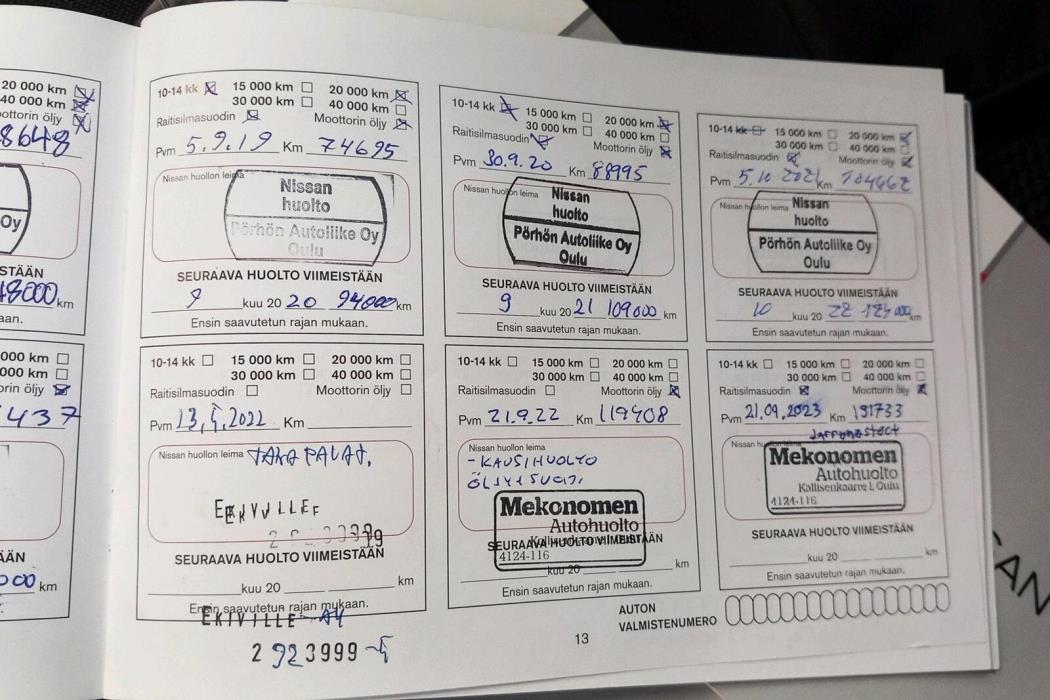 20 000 km
40 000 km
Moottorin öljy
8648
Oy
48000 km
10-14 kk 15 000 km 20 000 km
30 000 km 40 000 km
Raitisilmasuodin Moottorin öljy
Pvm 5.9.19 Km 74695
Nissan huollon leima
Nissan
huolto
Pörhön Autoliike Oy
Oulu
SEURAAVA HUOLTO VIIMEISTÄÄN
9 kuu 20 20 94000 km
Ensin saavutetun rajan mukaan.
10-14 kk 15 000 km 20 000 km
30 000 km 40 000 km
Raitisilmasuodin Moottorin öljy
Pvm 30.9.20 Km 88995
Nissan huollon leima
Nissan
huolto
Pörhön Autoliike Oy
Oulu
SEURAAVA HUOLTO VIIMEISTÄÄN
9 kuu 20 21 109000 km
Ensin saavutetun rajan mukaan.
10-14 kk 15 000 km 20 000 km
30 000 km 40 000 km
Raitisilmasuodin Moottorin öljy
Pvm 5.10 2021 Km 104662
Nissan huollon leima
Nissan
huolto
Pörhön Autoliike Oy
Oulu
SEURAAVA HUOLTO VIIMEISTÄÄN
10 kuu 20 22 km
Ensin saavutetun rajan mukaan.
000 km
000 km
orin öljy
437
000 km
10-14 kk 15 000 km 20 000 km
30 000 km 40 000 km
Raitisilmasuodin Moottorin öljy
Pvm 13,5,2022 Km
Nissan huollon leima TAKA PALAT,
EKIVILLE
SEURAAVA HUOLTO VIIMEISTÄÄN
kuu 20 km
Ensin saavutetun rajan mukaan.
EKIVILLE AY
2 923999
10-14 kk 15 000 km 20 000 km
30 000 km 40 000 km
Raitisilmasuodin Moottorin öljy
Pvm 21.9.22 Km 119408
Nissan huollon leima
- KAUSIHUOLTO
ÖLJY+SUOD.
Mekonomen
Autohuolto
4124-116
SEURAAVA HUOLTO VIIMEISTÄÄN
kuu 20 km
Ensin saavutetun rajan mukaan.
10-14 kk 15 000 km 20 000 km
30 000 km 40 000 km
Raitisilmasuodin Moottorin öljy
Pvm 21.09.2023 Km 131733
Jarrunesteet
Nissan huollon leima
Mekonomen
Autohuolto
Kallisenkaarre 1, Oulu
4124-116
SEURAAVA HUOLTO VIIMEISTÄÄN
kuu 20 km
Ensin saavutetun rajan mukaan.
AUTON
VALMISTENUMERO
13